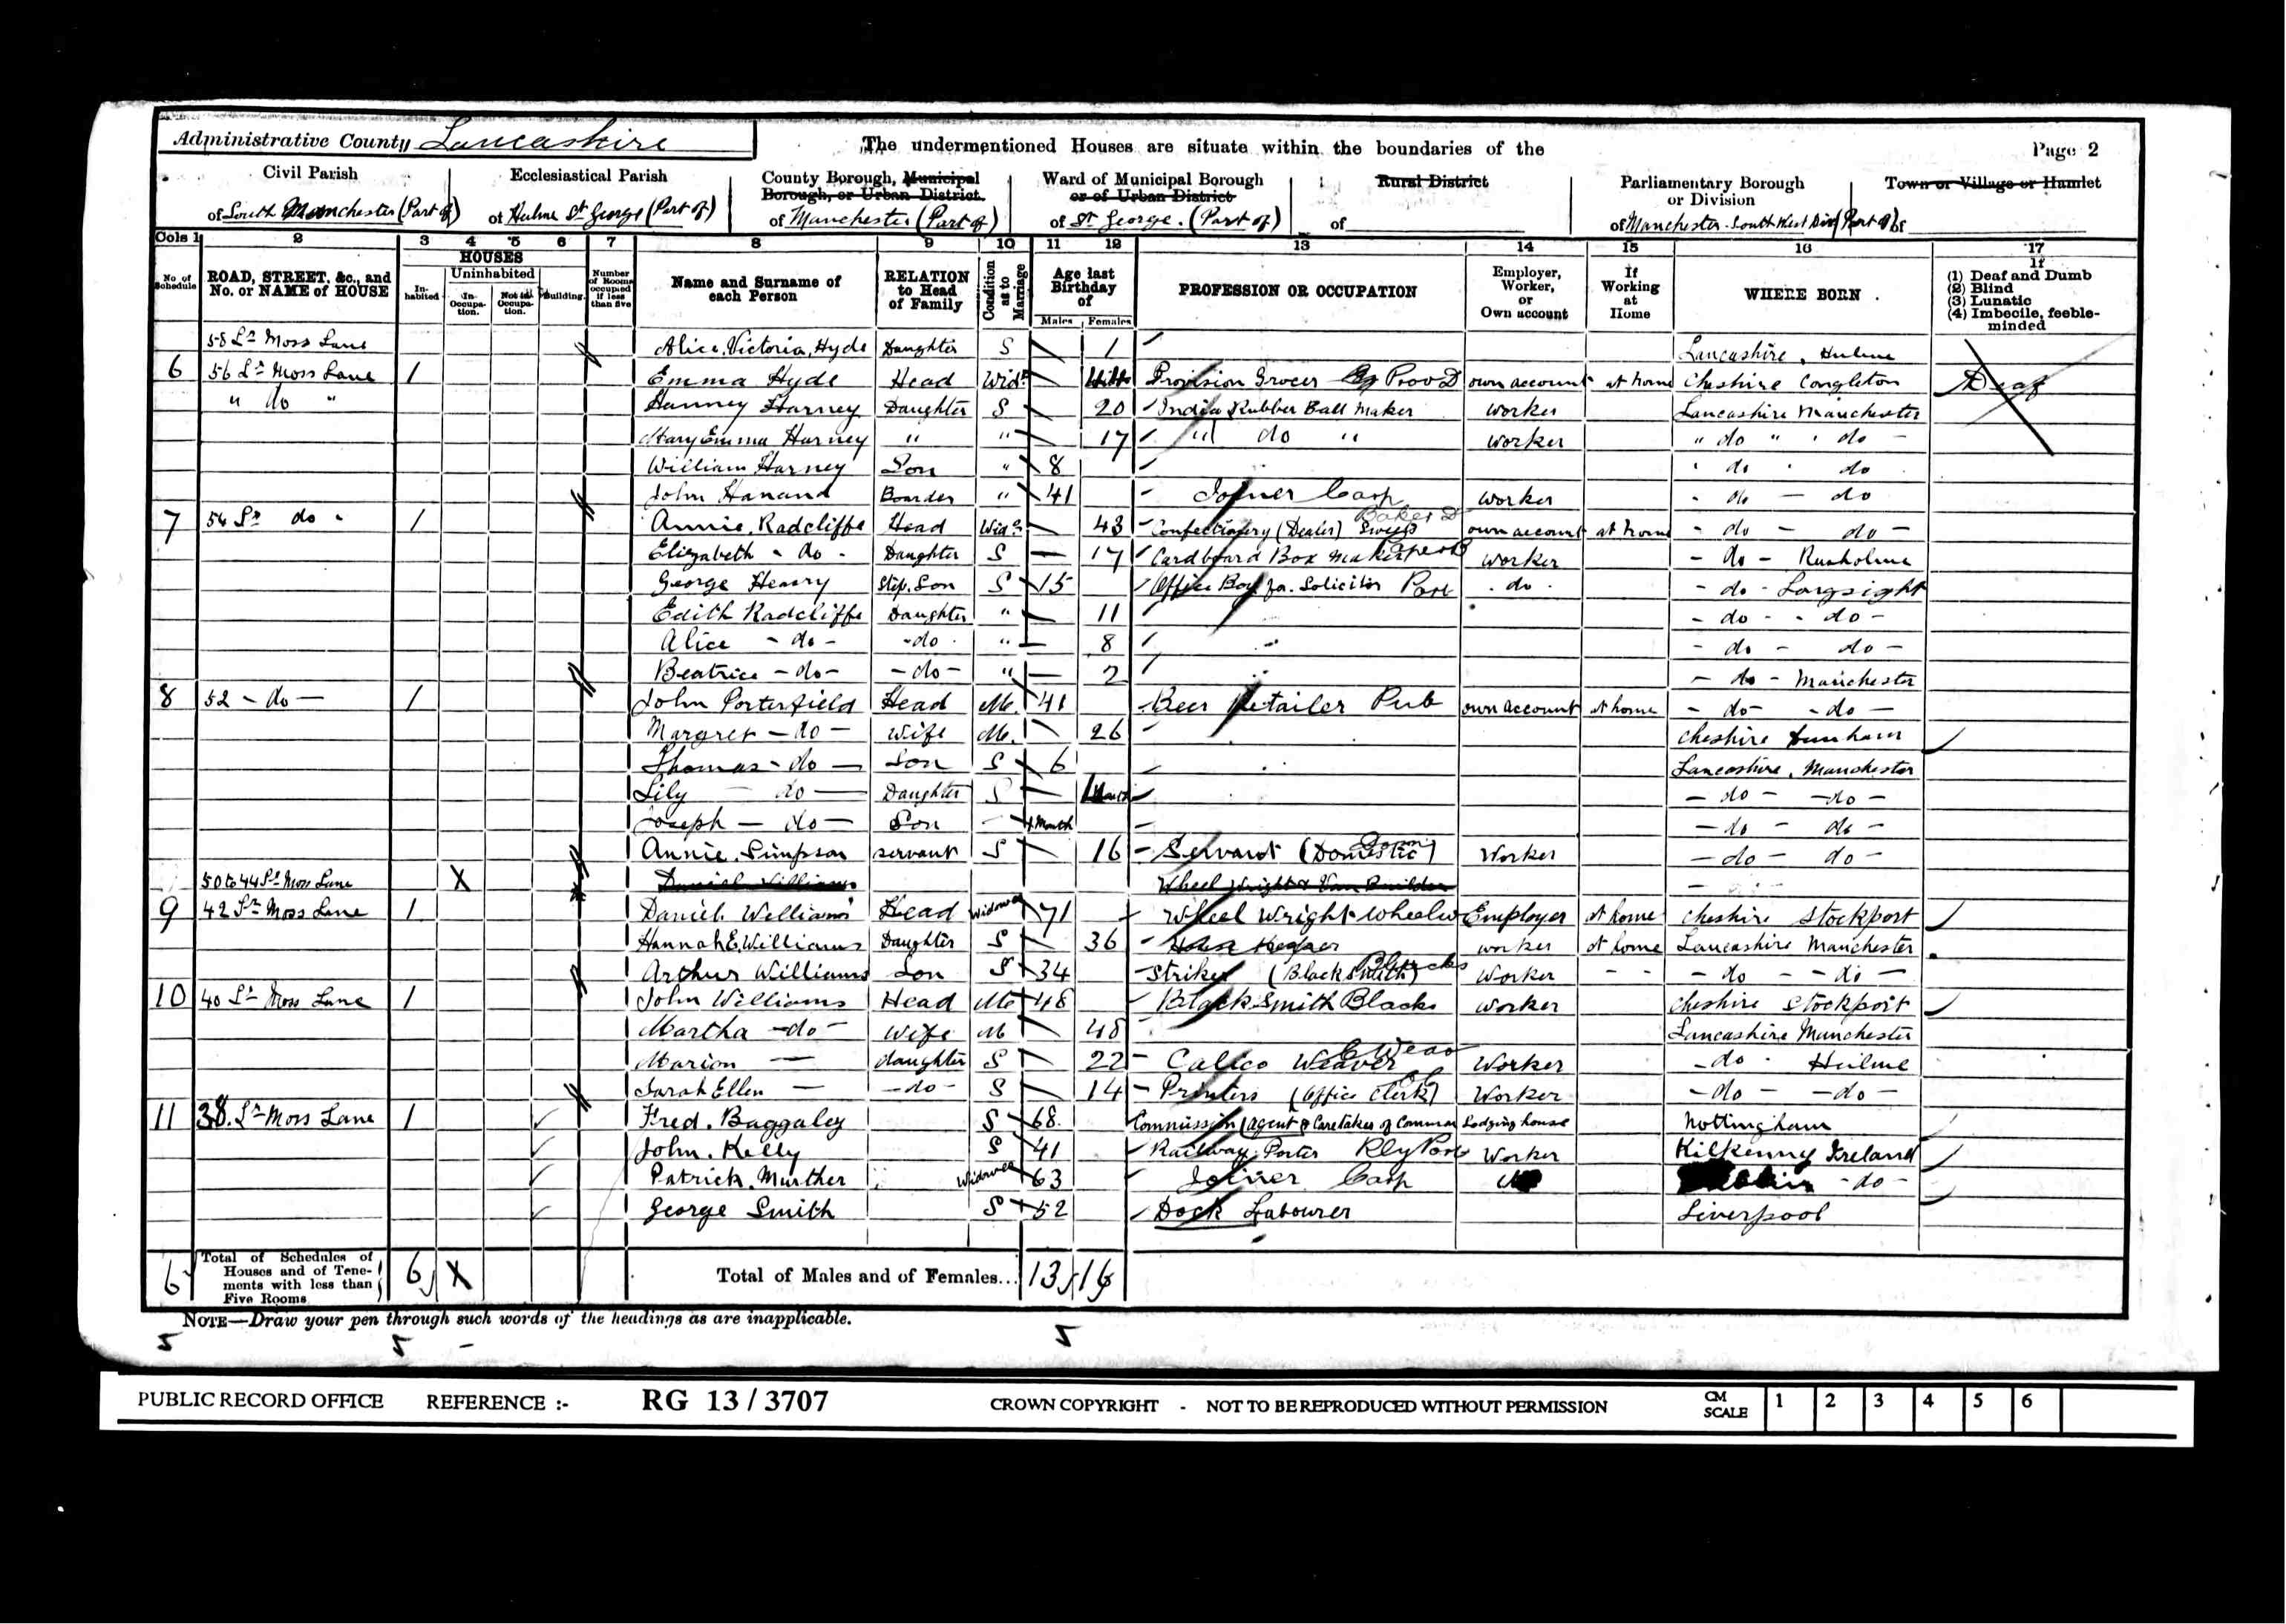 Administrative County Lancashire
The undermentioned Houses are situate within the boundaries of the
Page 2
Civil Parish
of South Manchester (Part of)
Ecclesiastical Parish
of Hulme St George (Part of)
County Borough, Municipal
Borough, or Urban District
of Manchester (Part of)
Ward of Municipal Borough
or of Urban District
of St George. (Part of)
Rural District
of
Parliamentary Borough
or Division
of Manchester South West Div (Part of)
Town or Village or Hamlet
of
Cols 1 2 3 4 5 6 7 8 9 10 11 12 13 14 15 16 17
No. of Schedule
ROAD, STREET, &c., and No. or NAME of HOUSE
HOUSES
Inhabited
Uninhabited
In Occupation.
Not in Occupation.
Building.
Number of Rooms occupied if less than five
Name and Surname of each Person
RELATION to Head of Family
Condition as to Marriage
Age last Birthday of
Males Females
PROFESSION OR OCCUPATION
Employer, Worker, or Own account
If Working at Home
WHERE BORN
If
(1) Deaf and Dumb
(2) Blind
(3) Lunatic
(4) Imbecile, feeble-minded
58 Lr Moss Lane Alice Victoria Hyde Daughter S 1 Lancashire, Hulme
6 56 Lr Moss Lane 1 Emma Hyde Head Widr Provision Grocer Prov D own account at home Cheshire Congleton Deaf
" do " Harney Daughter S 20 India Rubber Ball Maker worker Lancashire Manchester
Mary Emma Harney " " 17 " do " worker " do " " do -
William Harney Son " 8 " do " do
John Boarder " 41 Joiner Carp worker - do - do
7 54 Lr do 1 Annie Radcliffe Head Wid 43 Confectionery (Dealer) Sweets Baker D own account at home - do - do -
Elizabeth - do - Daughter S 17 Cardboard Box Maker worker - do - Rusholme
George Henry Step. Son S 15 Office Boy for Solicitor . do . - do - Longsight
Edith Radcliffe Daughter " 11 - do - - do -
Alice - do - - do - " 8 - do - do -
Beatrice - do - - do - " 2 - do - Manchester
8 52 - do - 1 John Porterfield Head M. 41 Beer Retailer Pub own account at home - do - - do -
Margret - do - Wife M. 26 Cheshire
Thomas - do - Son S 6 Lancashire, Manchester
Lily - do - Daughter S - do - - do -
Joseph - do - Son - Month - do - do -
Annie Simpson servant S 16 Servant (Domestic) Dom Worker - do - do -
50 to 44 Lr Moss Lane X Daniel Williams Wheel Wright & Van Builder
9 42 Lr Moss Lane 1 Daniel Williams Head Widower 71 Wheel Wright Wheelw Employer at home Cheshire Stockport
Hannah E. Williams Daughter S 36 House Keeper worker at home Lancashire Manchester
Arthur Williams Son S 34 Striker (Blacksmith) Blacks Worker - - - do - - do -
10 40 Lr Moss Lane 1 John Williams Head M 48 Blacksmith Blacks worker Cheshire Stockport
Martha - do - Wife M 48 Lancashire Manchester
Marion - daughter S 22 Calico Weaver C Weav Worker - do - Hulme
Sarah Ellen - - do - S 14 Printers (Office Clerk) Worker - do - - do -
11 38. Lr Moss Lane 1 Fred. Baggaley S 68 Commission Agent & Caretaker of Common Lodging house Nottingham
John. Kelly S 41 Railway Porter Rly Port Worker Kilkenny Ireland
Patrick. Murther Widower 63 Joiner Carp - do -
George Smith S 52 Dock Labourer Liverpool
6 Total of Schedules of Houses and of Tenements with less than Five Rooms 6 X Total of Males and of Females... 13 16
NOTE—Draw your pen through such words of the headings as are inapplicable.
5 5 - 5
PUBLIC RECORD OFFICE REFERENCE :- RG 13 / 3707 CROWN COPYRIGHT - NOT TO BE REPRODUCED WITHOUT PERMISSION CM SCALE 1 2 3 4 5 6